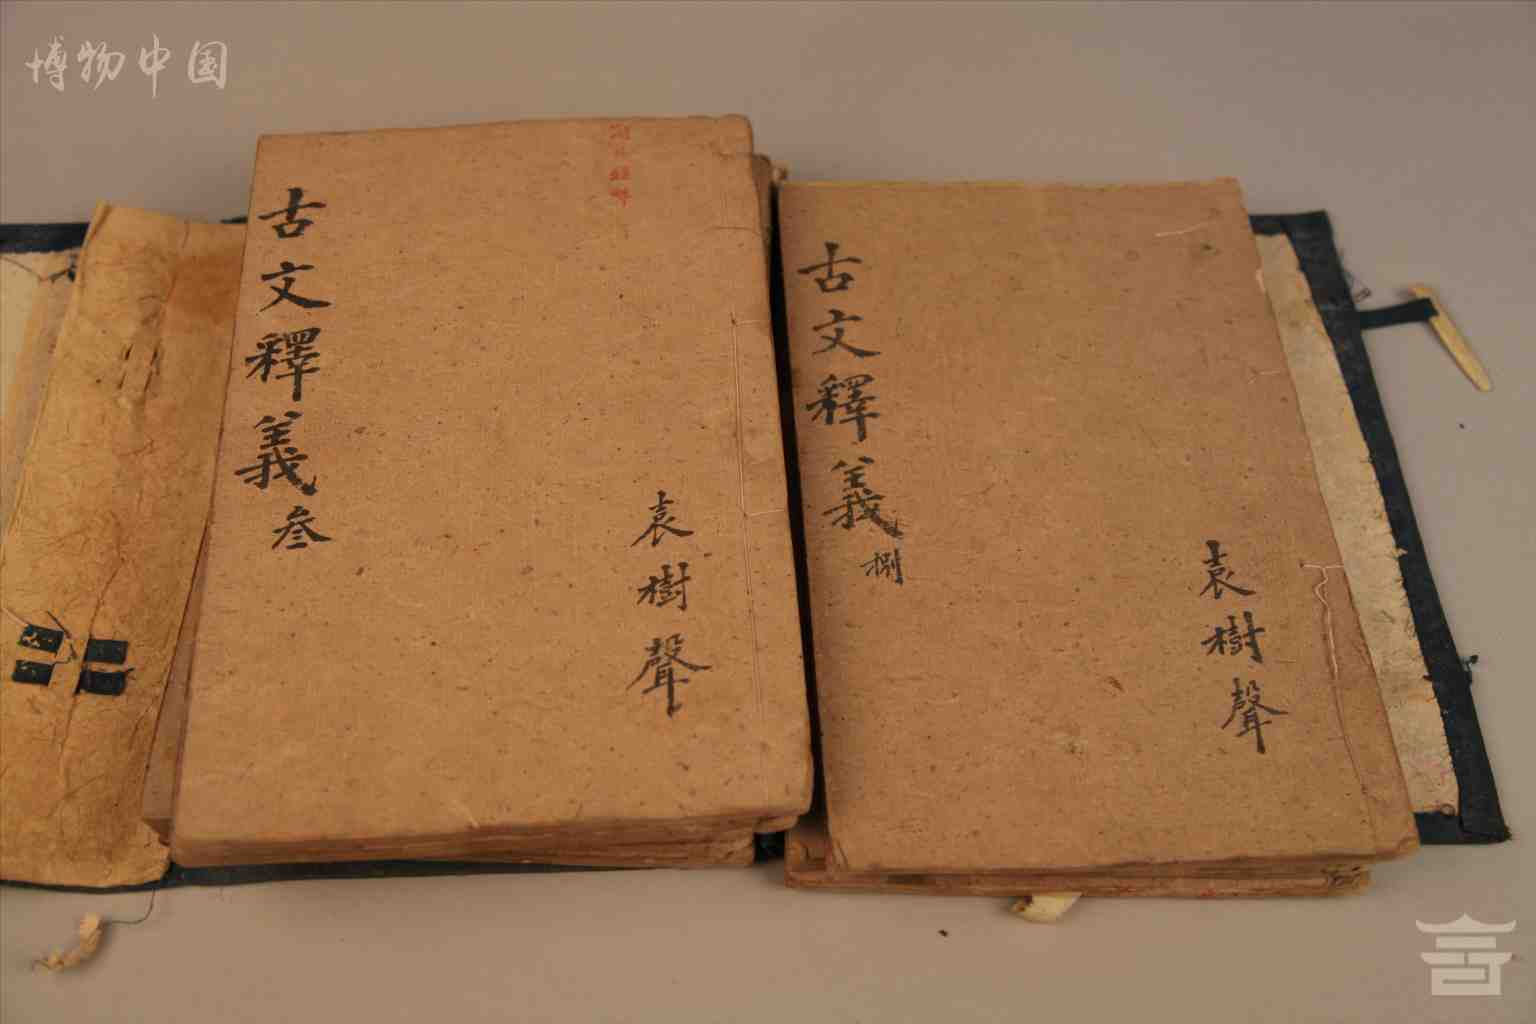 博物中国
古文釋義叁
袁樹聲
古文釋義捌
袁樹聲